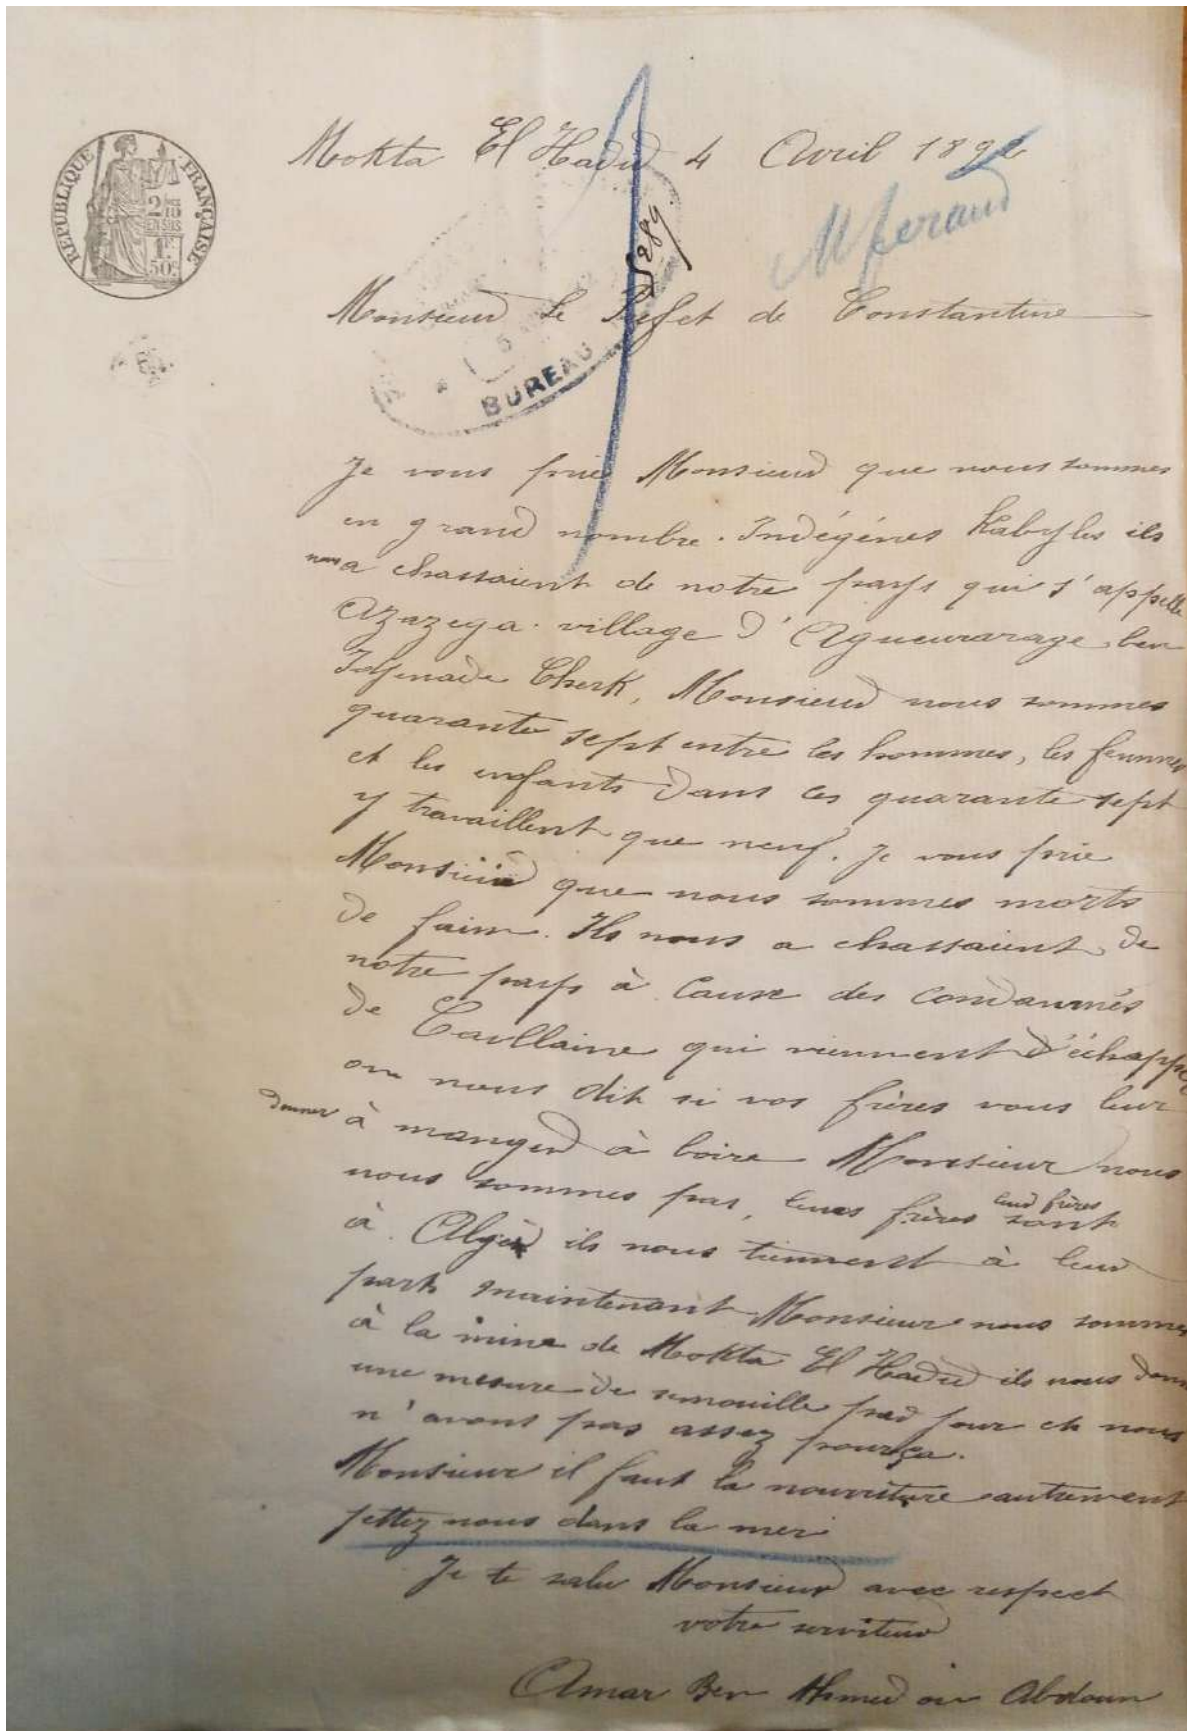 RÉPUBLIQUE FRANÇAISE
2/10 EN SUS
1F 50c
Mokta El Hadid 4 Avril 1892
M feraud
5289
Monsieur le Prefet de Constantine
5
BUREAU
Je vous prie Monsieur que nous sommes
en grand nombre. Indégénes Kabyles ils
nous a chassaient de notre pays qui s'appelle
Azazega. village d'Agueurarage ben
Cherk, Monsieur nous sommes
quarante sept entre les hommes, les femmes
et les enfants dans ces quarante sept
y travaillent que neuf. Je vous prie
Monsieur que nous sommes morts
de faim. Ils nous a chassaient de
notre pays à cause des condamnés
de Caullaine qui viennent d'échappé
on nous dit si vos frères vous leur
donner à manger à boire Monsieur nous
nous sommes pas, leurs frères leur frères sont
à Alger ils nous tiennent à leur
part maintenant Monsieur nous sommes
à la mine de Mokta El Hadid ils nous donn
une mesure de semouille par jour et nous
n'avons pas assez pour ça.
Monsieur il faut la nourriture autrement
jettez nous dans la mer
Je te salue Monsieur avec respect
votre serviteur
Amar Ben Ahmed ou Abdoun